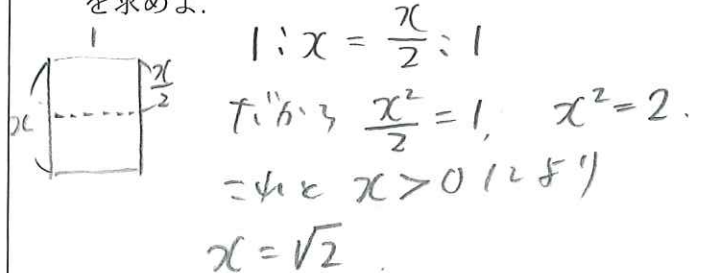 を求めよ.
1
x
x/2
1 : x = x/2 : 1
だから x²/2 = 1, x² = 2.
これと x > 0 により
x = √2.